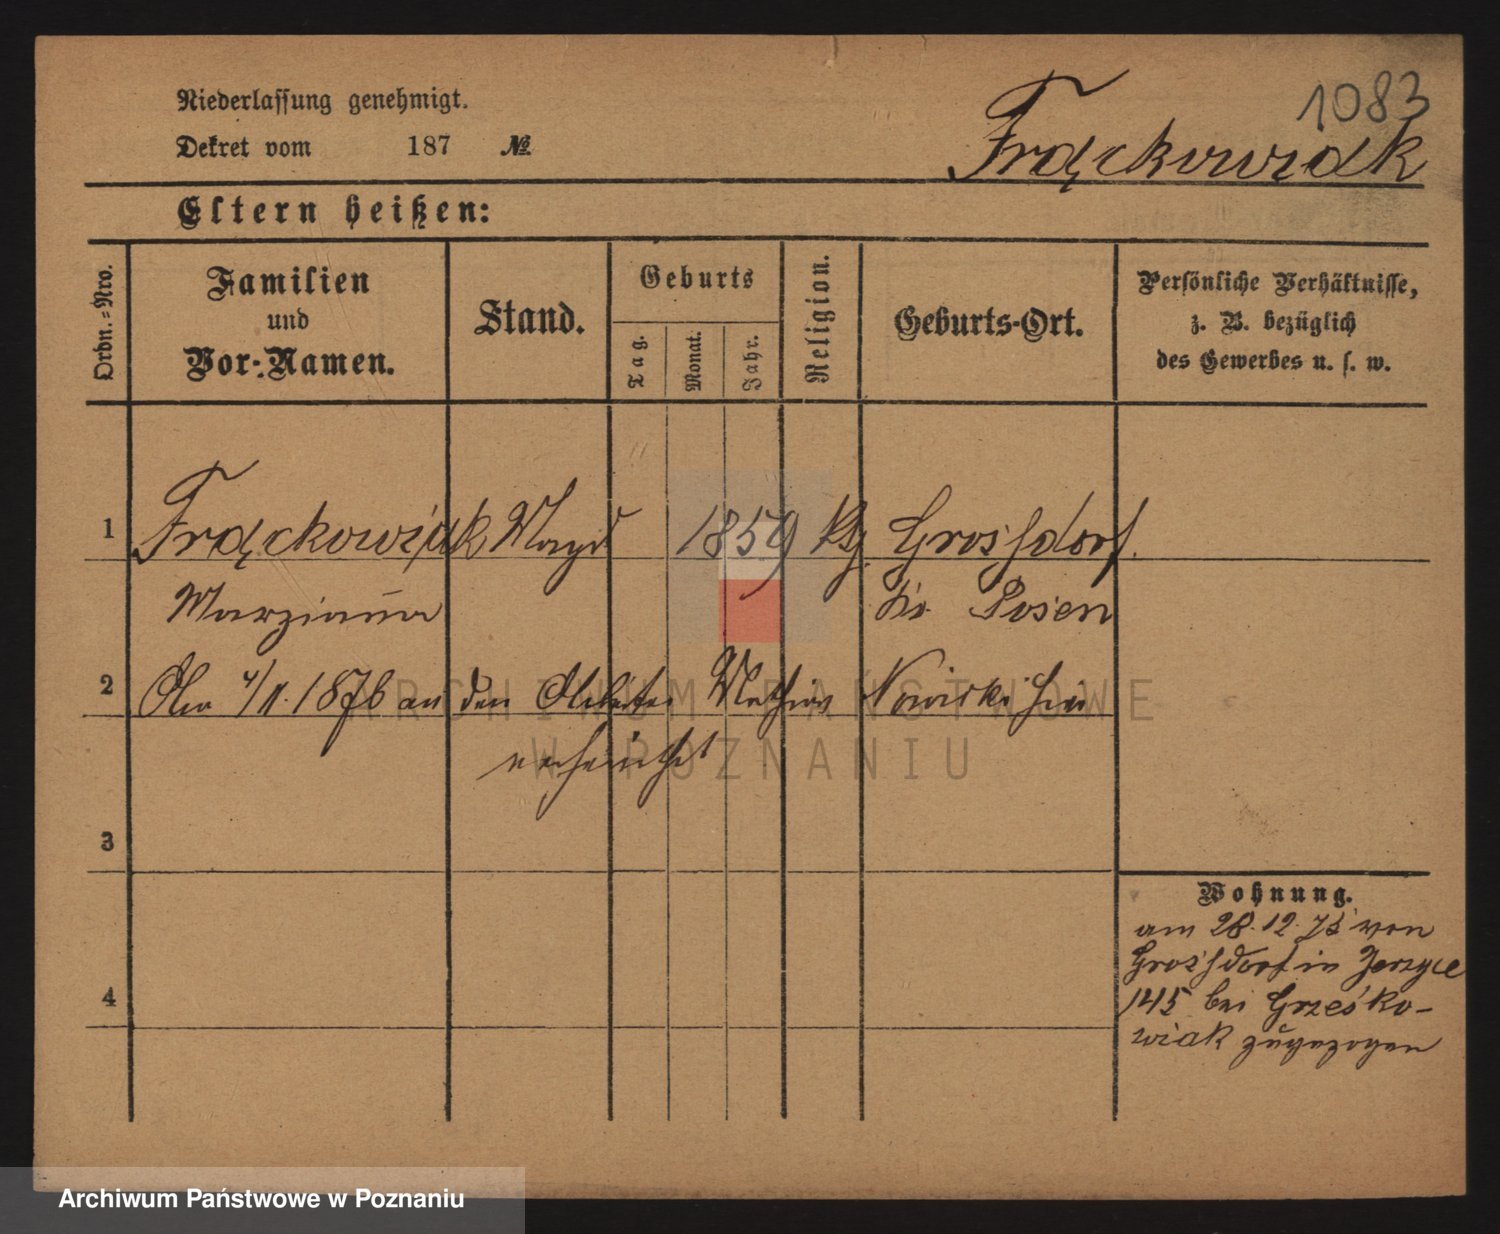 1083
Niederlassung genehmigt.
Dekret vom 187 №
Frąckowiak
Eltern heißen:
Ordn.-Nro.
Familien
und
Vor-Namen.
Stand.
Geburts
Tag.
Monat.
Jahr.
Religion.
Geburts-Ort.
Persönliche Verhältnisse,
z. B. bezüglich
des Gewerbes u. s. w.
1 Frąckowiak Magd 1859 Großdorf.
Marzianna Posen
2 1876 an den Arbeiter Mathias Nowicki hier
verheirathet
3
Wohnung.
am 28.12.75 von
Großdorf in Jerzyce
145 bei Grześko-
wiak zugezogen
4
ARCHIWUM PAŃSTWOWE
W POZNANIU
Archiwum Państwowe w Poznaniu